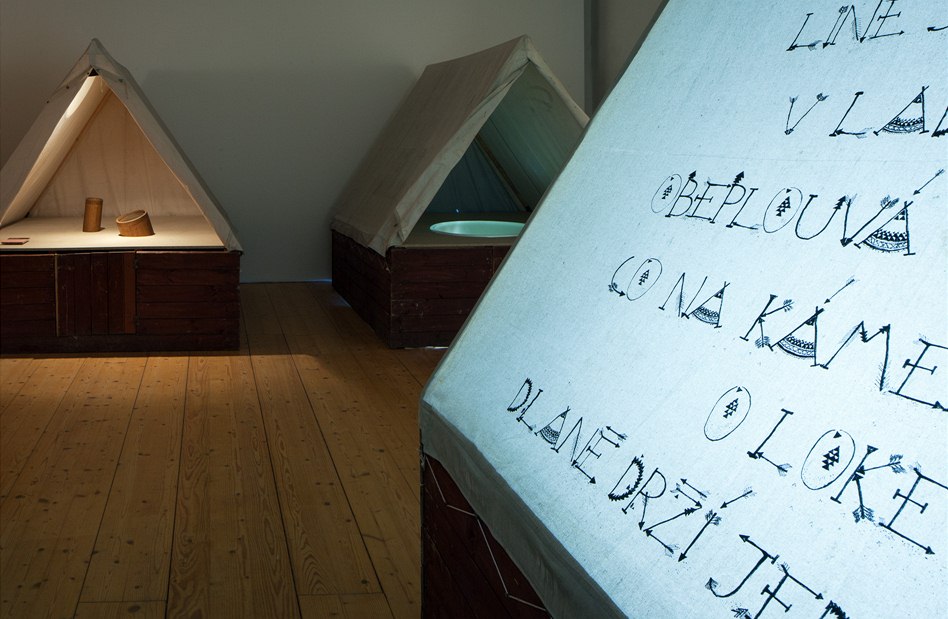 LINE
V
OBEPLOUVÁ
CO NA KÁME
O LOKE
DLANĚ DRŽÍ